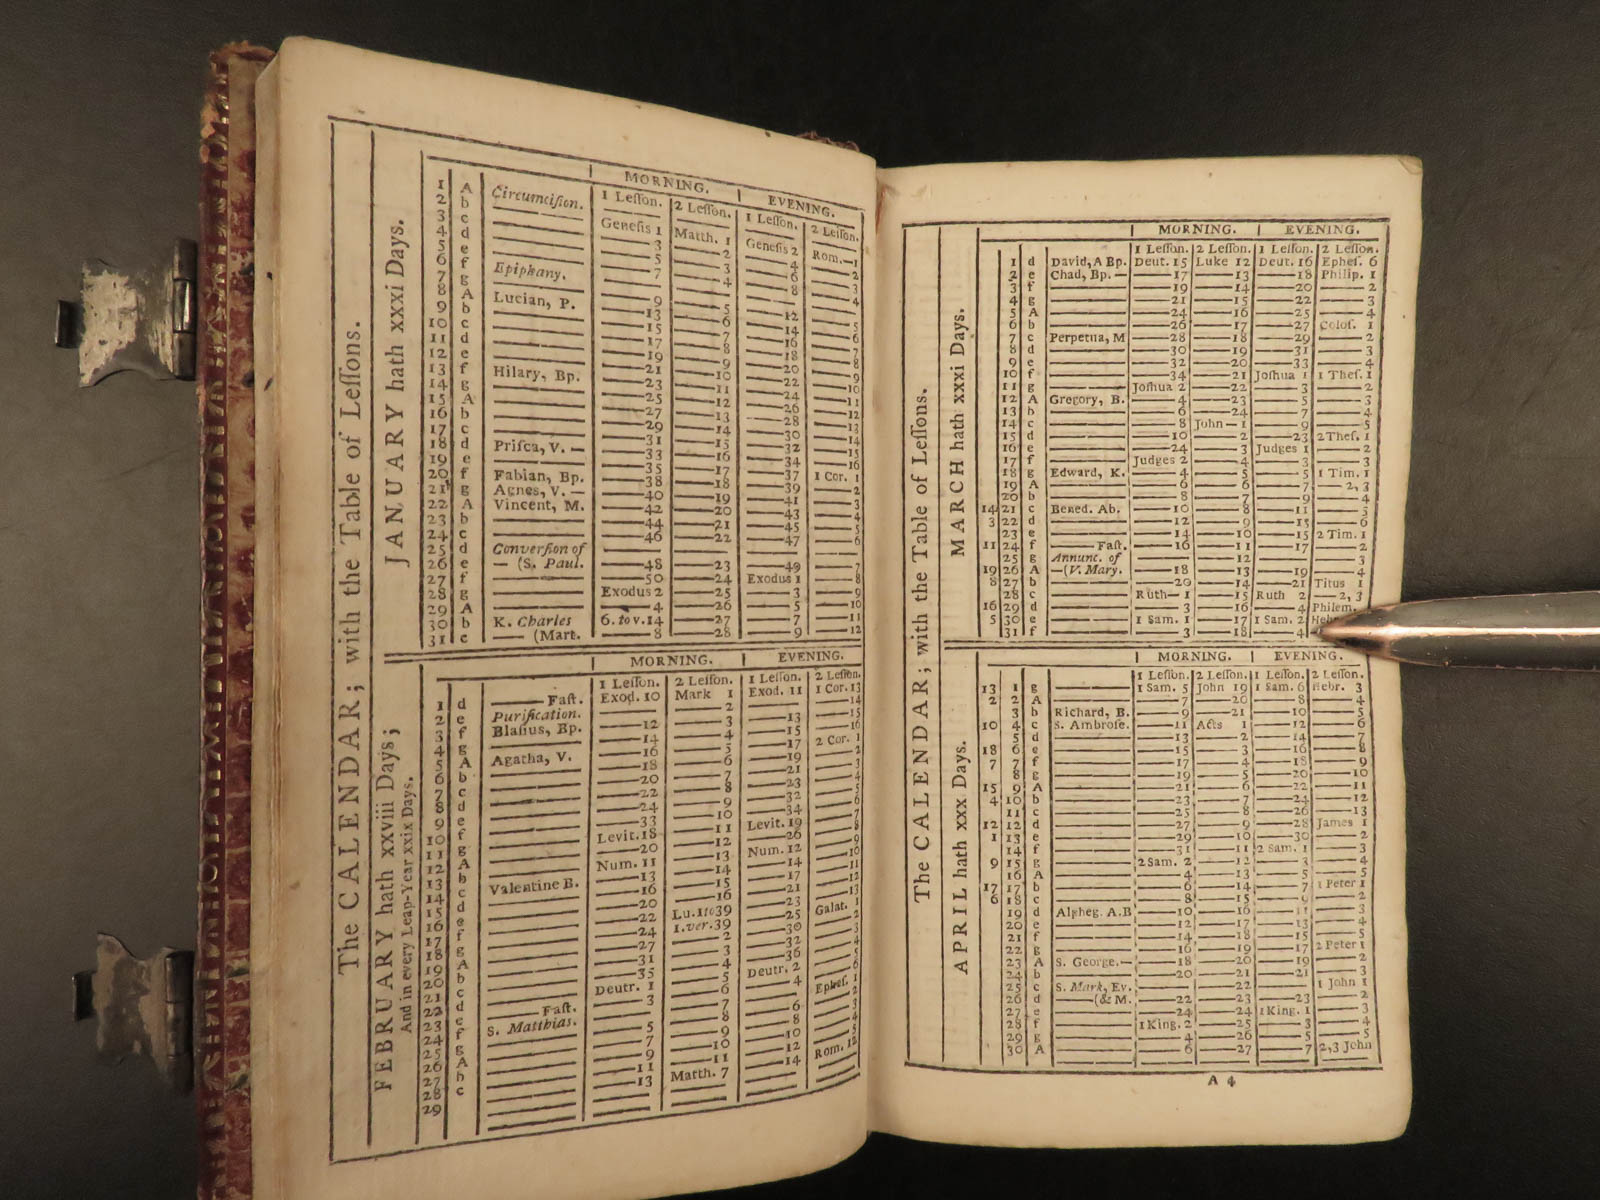 The CALENDAR; with the Table of Leſſons.
JANUARY hath xxxi Days.
MORNING. EVENING.
1 Leſſon. 2 Leſſon. 1 Leſſon. 2 Leſſon.
1 A Circumciſion.
2 b Geneſis 1 Matth. 1 Geneſis 2 Rom.—1
3 c 3 2 4 2
4 d 5 3 6 3
5 e 7 4 8 4
6 f Epiphany.
7 g 9 5 12 5
8 A Lucian, P. 13 6 14 6
9 b 15 7 16 7
10 c 17 8 18 8
11 d 19 9 20 9
12 e 21 10 22 10
13 f Hilary, Bp. 23 11 24 11
14 g 25 12 26 12
15 A 27 13 28 13
16 b 29 14 30 14
17 c 31 15 32 15
18 d Priſca, V. — 33 16 34 16
19 e 35 17 37 1 Cor. 1
20 f Fabian, Bp. 38 18 39 2
21 g Agnes, V. — 40 19 41 3
22 A Vincent, M. 42 20 43 4
23 b 44 21 45 5
24 c 46 22 47 6
25 d Converſion of
26 e — (S. Paul. 48 23 49 7
27 f 50 24 Exodus 1 8
28 g Exodus 2 25 3 9
29 A 4 26 5 10
30 b K. Charles 6. to v. 14 27 7 11
31 c — (Mart. 8 28 9 12
FEBRUARY hath xxviii Days;
And in every Leap-Year xxix Days.
MORNING. EVENING.
1 Leſſon. 2 Leſſon. 1 Leſſon. 2 Leſſon.
1 d Faſt. Exod. 10 Mark 1 Exod. 11 1 Cor. 13
2 e Purification. 2 14
3 f Blaſius, Bp. 12 3 13 15
4 g 14 4 15 16
5 A Agatha, V. 16 5 17 2 Cor. 1
6 b 18 6 19 2
7 c 20 7 21 3
8 d 22 8 23 4
9 e 24 9 32 5
10 f 33 10 34 6
11 g Levit. 18 11 Levit. 19 7
12 A 20 12 26 8
13 b Num. 11 13 Num. 12 9
14 c Valentine B. 13 14 14 10
15 d 16 15 17 11
16 e 20 16 21 12
17 f 22 Lu. 1 to 39 23 13
18 g 24 1. ver. 39 25 Galat. 1
19 A 27 2 30 2
20 b 31 3 32 3
21 c 35 4 36 4
22 d Deutr. 1 5 Deutr. 2 5
23 e Faſt. 3 6 4 6
24 f S. Matthias. 7 Epheſ. 1
25 g 5 8 6 2
26 A 7 9 8 3
27 b 9 10 10 4
28 c 11 11 12 5
29 13 Matth. 7 14 Rom. 12
The CALENDAR; with the Table of Leſſons.
MARCH hath xxxi Days.
MORNING. EVENING.
1 Leſſon. 2 Leſſon. 1 Leſſon. 2 Leſſon.
1 d David, A Bp. Deut. 15 Luke 12 Deut. 16 Epheſ. 6
2 e Chad, Bp. — 17 13 18 Philip. 1
3 f 19 14 20 2
4 g 21 15 22 3
5 A 24 16 25 4
6 b 26 17 27 Coloſ. 1
7 c Perpetua, M 28 18 29 2
8 d 30 19 31 3
9 e 32 20 33 4
10 f 34 21 Joſhua 1 1 Theſ. 1
11 g Joſhua 2 22 3 2
12 A Gregory, B. 4 23 5 3
13 b 6 24 7 4
14 c 8 John — 1 9 5
15 d 10 2 23 2 Theſ. 1
16 e 24 3 Judges 1 2
17 f Judges 2 4 3 3
18 g Edward, K. 4 5 5 1 Tim. 1
19 A 6 6 7 2, 3
20 b 8 7 9 4
14 21 c Bened. Ab. 10 8 11 5
3 22 d 12 9 13 6
23 e 14 10 15 2 Tim. 1
11 24 f Faſt. 16 11 17 2
25 g Annunc. of 12 3
19 26 A —(V. Mary. 18 13 19 4
8 27 b 20 14 21 Titus 1
28 c Ruth — 1 15 Ruth 2 2, 3
16 29 d 3 16 4 Philem.
5 30 e 1 Sam. 1 17 1 Sam. 2
31 f 3 18 4
APRIL hath xxx Days.
MORNING. EVENING.
1 Leſſon. 2 Leſſon. 1 Leſſon. 2 Leſſon.
13 1 g 1 Sam. 5 John 19 1 Sam. 6 Hebr. 3
2 2 A 7 20 8 4
3 b Richard, B. 9 21 10 5
10 4 c S. Ambroſe. 11 Acts 1 12 6
5 d 13 2 14 7
18 6 e 15 3 16 8
7 7 f 17 4 18 9
8 g 19 5 20 10
15 9 A 21 6 22 11
4 10 b 23 7 24 12
11 c 25 8 26 13
12 12 d 27 9 28 James 1
1 13 e 29 10 30 2
14 f 31 11 2 Sam. 1 3
9 15 g 2 Sam. 2 12 3 4
16 A 4 13 5 5
17 17 b 6 14 7 1 Peter 1
6 18 c 8 15 9 2
19 d Alpheg. A.B 10 16 11 3
20 e 12 17 13 4
21 f 14 18 15 5
22 g 16 19 17 2 Peter 1
23 A S. George.— 18 20 19 2
24 b 20 21 21 3
25 c S. Mark, Ev. 22 1 John 1
26 d (& M. 22 23 23 2
27 e 24 24 1 King. 1 3
28 f 1 King. 2 25 3 4
29 g 4 26 5 5
30 A 6 27 7 2,3 John
A 4